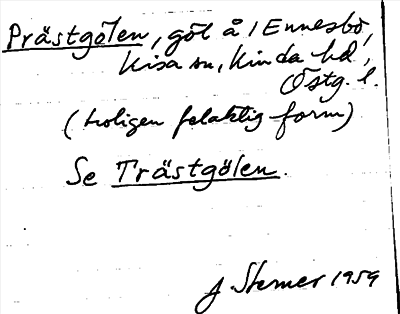 Prästgölen, göl å / Ennesbo,
Kisa sn, Kinda hd,
Östg. l.
(troligen felaktig form)
Se Trästgölen.
J. Sterner 1959